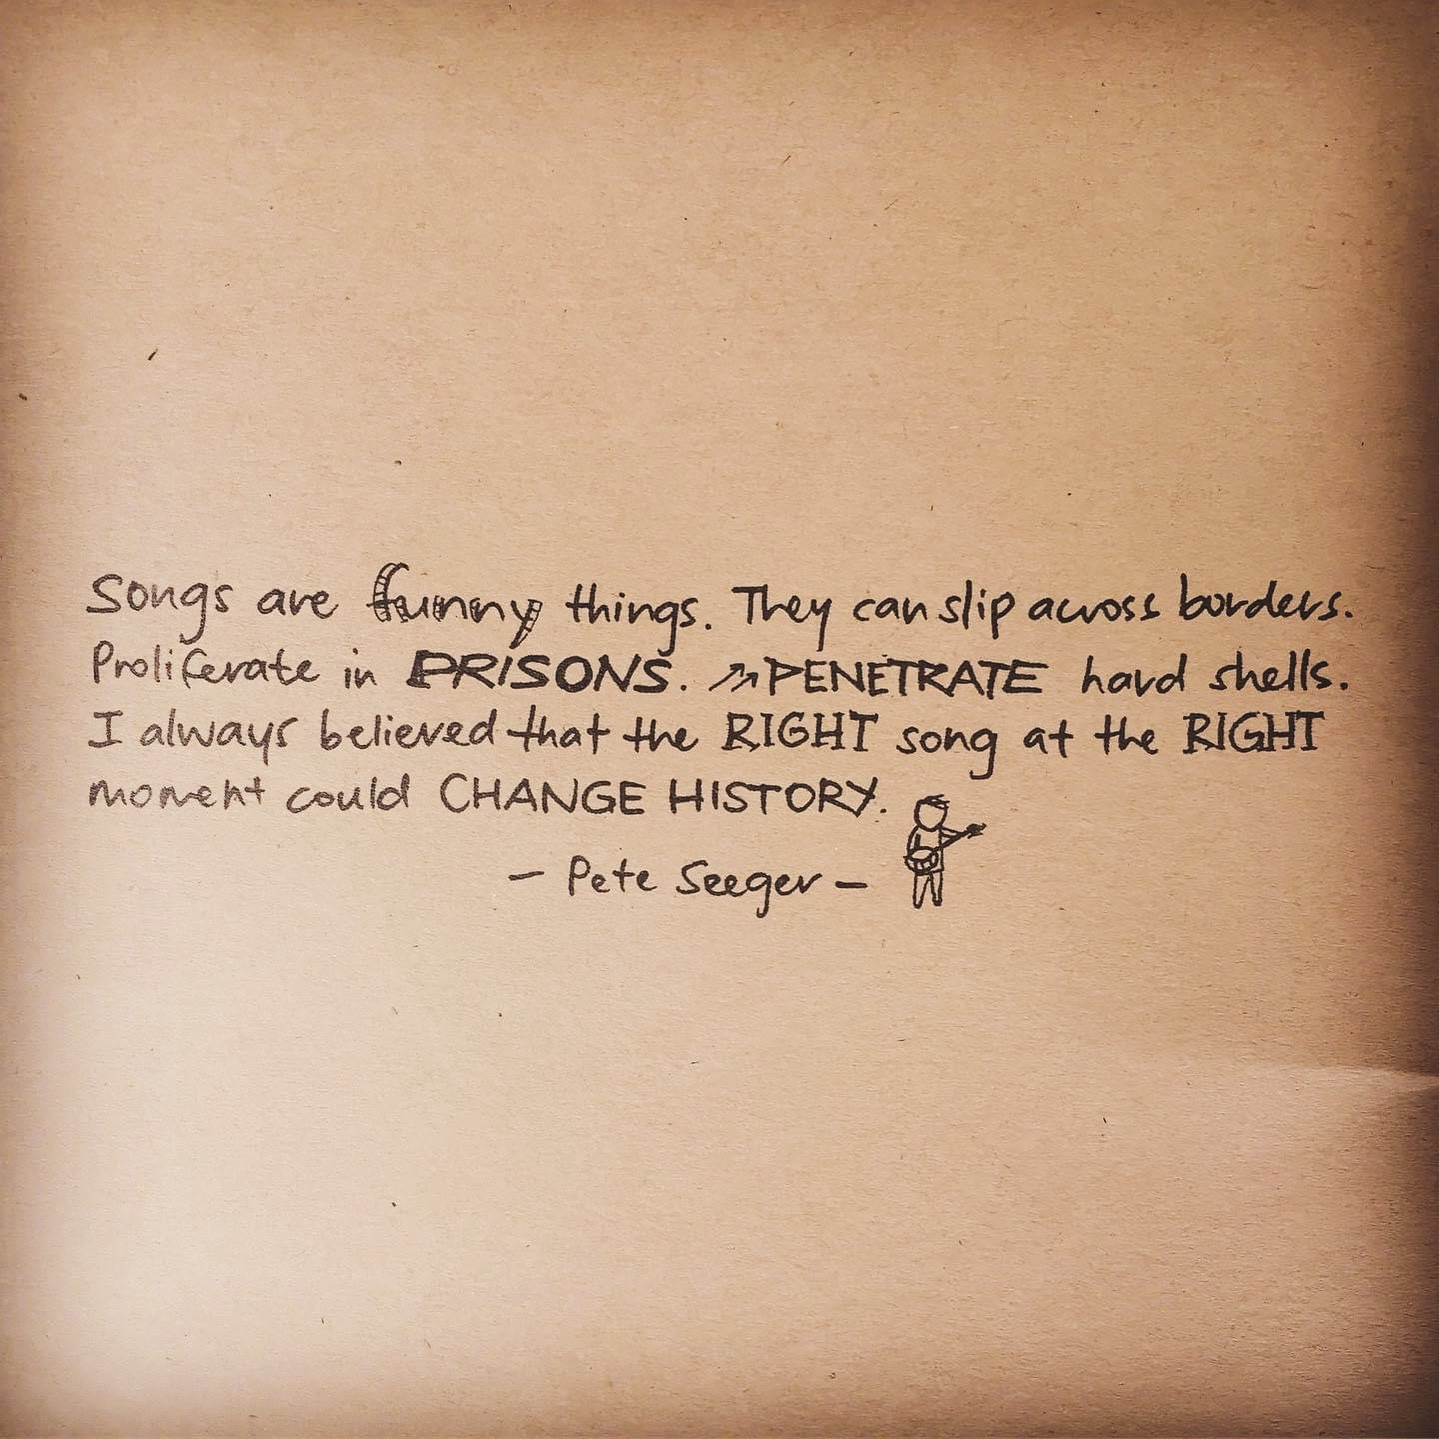 Songs are funny things. They can slip across borders.
Proliferate in PRISONS. PENETRATE hard shells.
I always believed that the RIGHT song at the RIGHT
moment could CHANGE HISTORY.
– Pete Seeger –